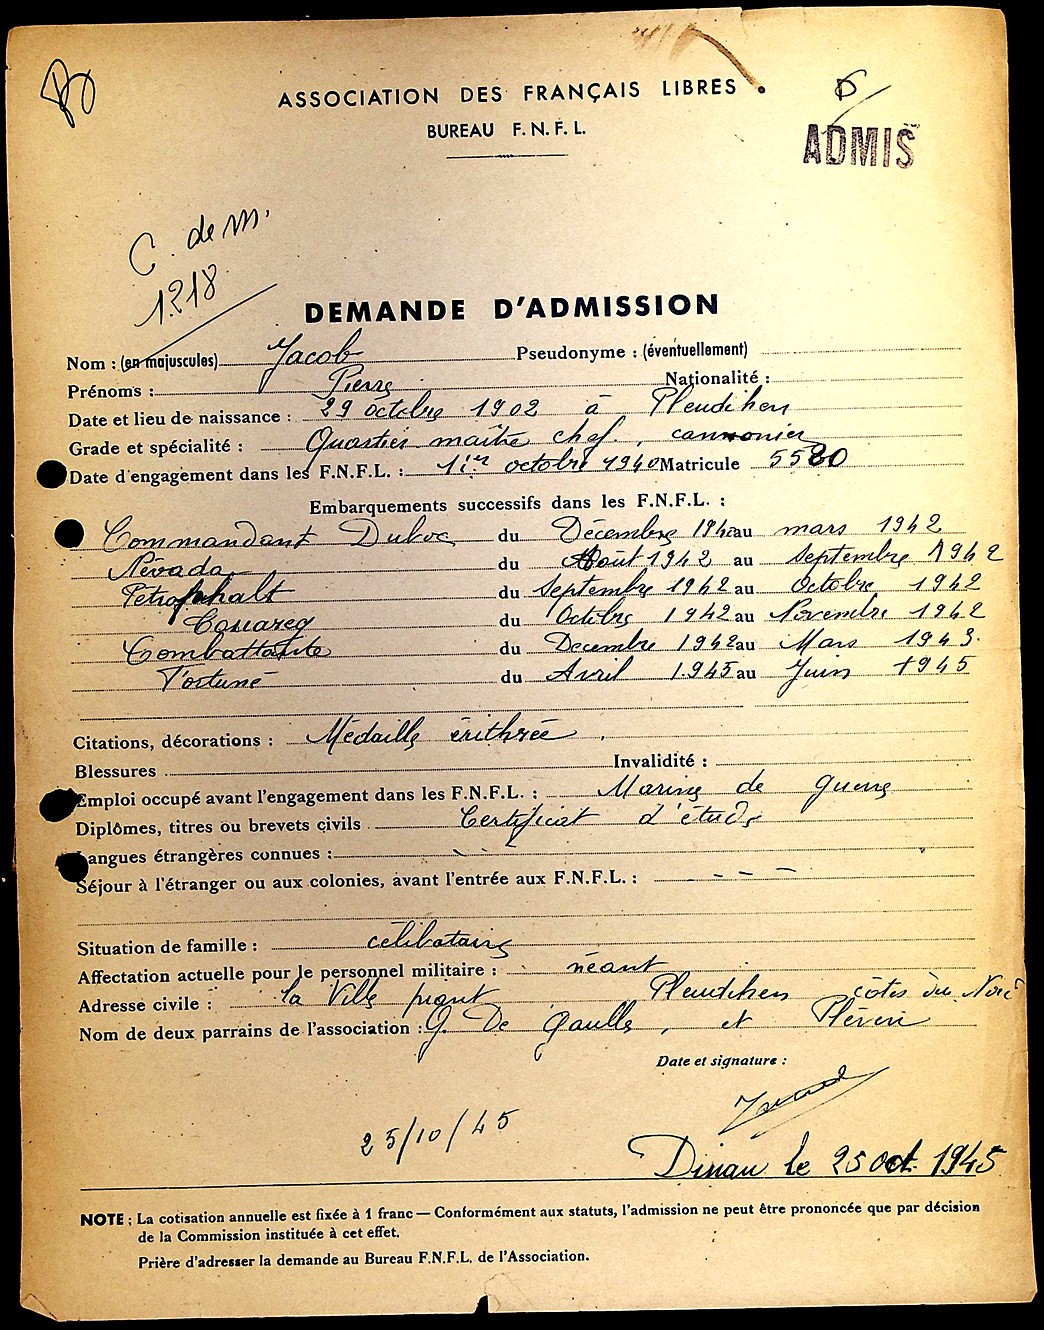 ASSOCIATION DES FRANÇAIS LIBRES
BUREAU F.N.F.L.
ADMIS
C. de m.
1218
DEMANDE D'ADMISSION
Nom : (en majuscules) Jacob Pseudonyme : (éventuellement)
Prénoms : Pierre Nationalité :
Date et lieu de naissance : 29 octobre 1902 à Pleudihen
Grade et spécialité : Quartier maître chef, cannonier
Date d'engagement dans les F.N.F.L. : 1ier octobre 1940 Matricule 5580
Embarquements successifs dans les F.N.F.L. :
Commandant Duboc du Décembre 194 au mars 1942
Névada du Août 1942 au Septembre 1942
Pétrophalt du Septembre 1942 au Octobre 1942
Touareg du Octobre 1942 au Novembre 1942
Combattante du Decembre 1942 au Mars 1943
Fortuné du Avril 1945 au Juin 1945
Citations, décorations : Médaille érithrée
Blessures Invalidité :
Emploi occupé avant l'engagement dans les F.N.F.L. : Marine de guerre
Diplômes, titres ou brevets civils Certificat d'étude
Langues étrangères connues :
Séjour à l'étranger ou aux colonies, avant l'entrée aux F.N.F.L. : - - -
Situation de famille : célibataire
Affectation actuelle pour le personnel militaire : néant
Adresse civile : la Ville Pleudihen côtes du Nord
Nom de deux parrains de l'association : G. De Gaulle, et Pléven
Date et signature :
25/10/45
Dinan le 25 oct. 1945
NOTE : La cotisation annuelle est fixée à 1 franc — Conformément aux statuts, l'admission ne peut être prononcée que par décision
de la Commission instituée à cet effet.
Prière d'adresser la demande au Bureau F.N.F.L. de l'Association.